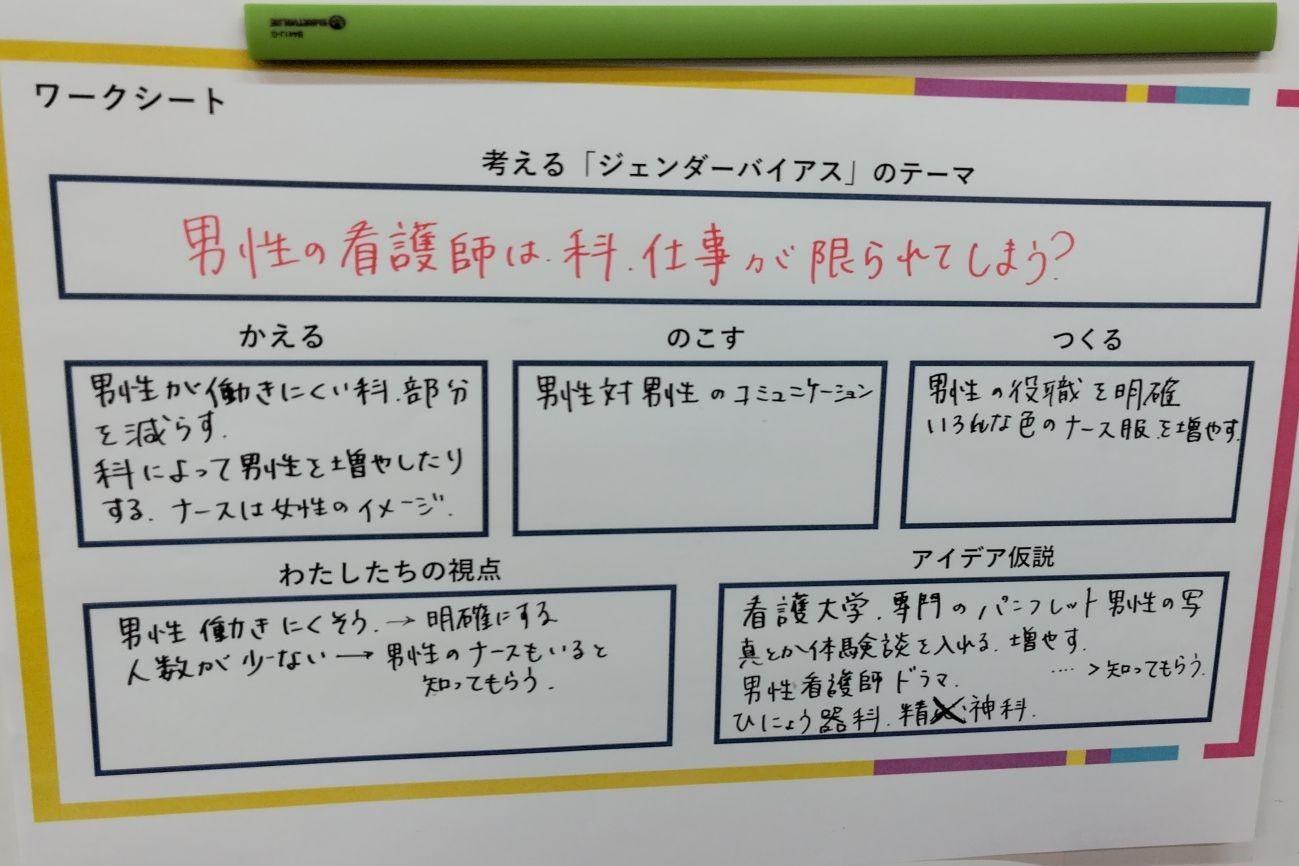 ワークシート
考える「ジェンダーバイアス」のテーマ
男性の看護師は、科、仕事が限られてしまう?
かえる
男性が働きにくい科、部分
を減らす。
科によって男性を増やしたり
する。ナースは女性のイメージ。
のこす
男性対男性のコミュニケーション
つくる
男性の役職を明確
いろんな色のナース服を増やす。
わたしたちの視点
男性働きにくそう。→明確にする
人数が少ない→男性のナースもいると
知ってもらう。
アイデア仮説
看護大学、専門のパンフレット男性の写
真とか体験談を入れる、増やす。
男性看護師ドラマ。 ....>知ってもらう。
ひにょう器科、精神科。